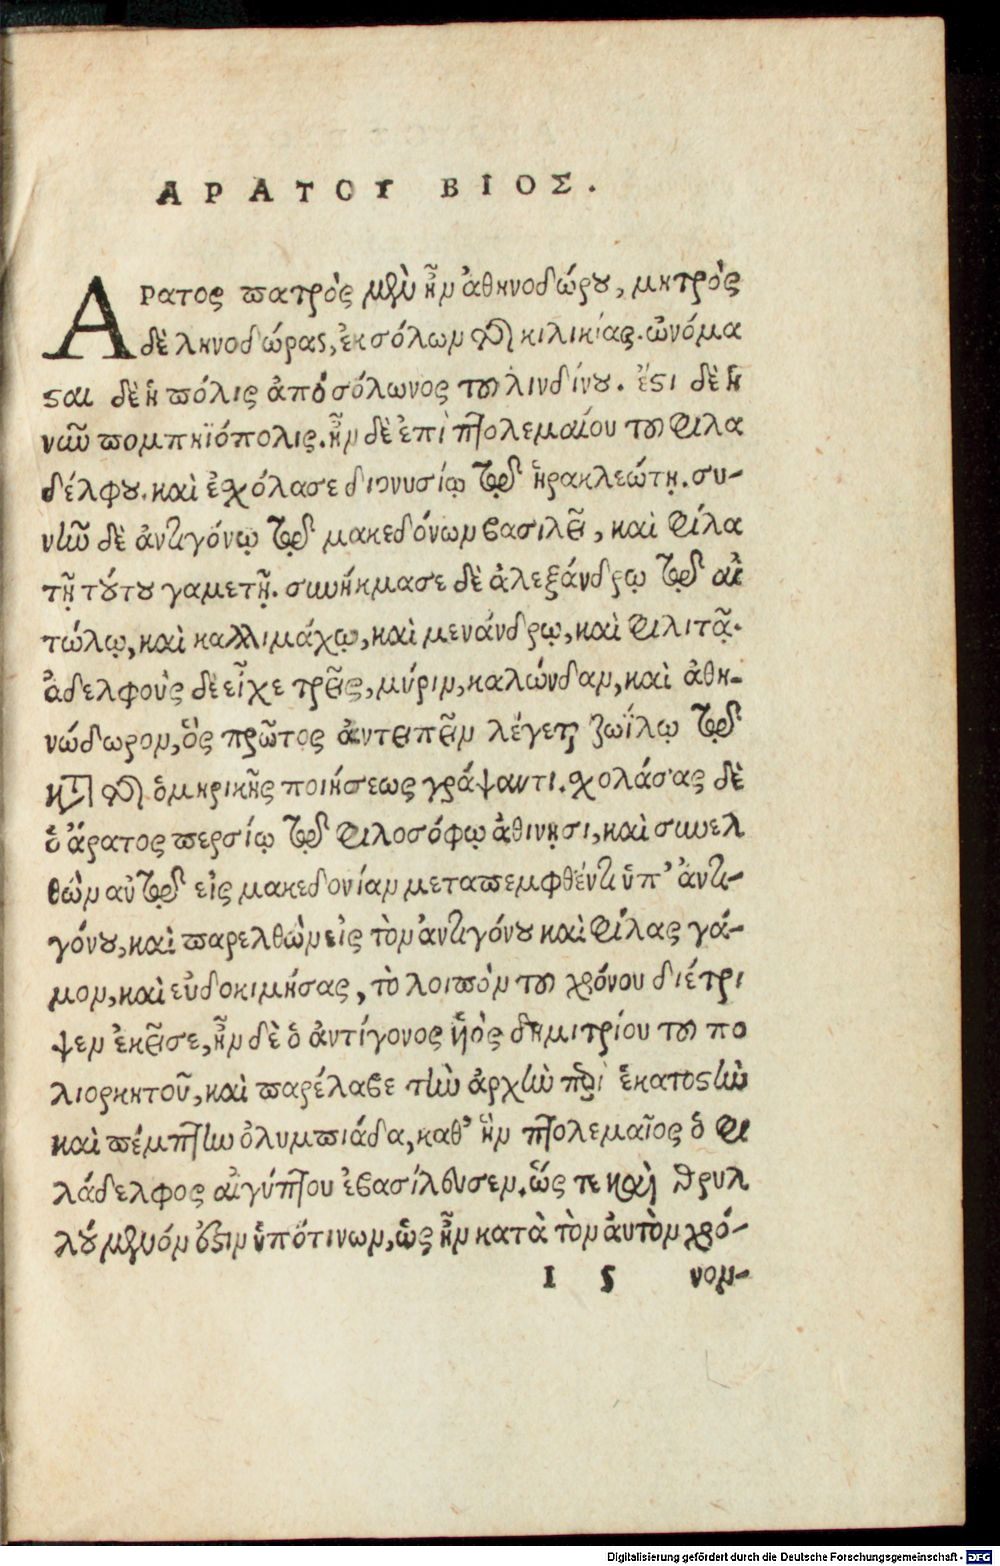 ΑΡΑΤΟΥ ΒΙΟΣ.
ΑΡατος πατρὸς μὲν ἦν ἀθηνοδώρου, μητρὸς
δὲ ληνοδώρας, ἐκ σόλων τῆς κιλικίας. ὠνόμα
σαι δὲ ἡ πόλις ἀπὸ σόλωνος τοῦ λινδίνου. ἔστι δὲ ἡ
νῦν πομπηϊόπολις. ἦν δὲ ἐπὶ πτολεμαίου τοῦ φιλα
δέλφου. καὶ ἐχόλασε διονυσίῳ τῷ ἡρακλεώτῃ. συ-
νῆν δὲ ἀντιγόνῳ τῷ μακεδόνων βασιλεῖ, καὶ φίλα
τῇ τούτου γαμετῇ. συνήκμασε δὲ ἀλεξάνδρῳ τῷ αἰ
τώλῳ, καὶ καλλιμάχῳ, καὶ μενάνδρῳ, καὶ φιλιτᾷ.
ἀδελφοὺς δὲ εἶχε τρεῖς, μύριν, καλώνδαν, καὶ ἀθη-
νώδωρον, ὃς πρῶτος ἀντειπεῖν λέγεται ζωΐλῳ τῷ
κατὰ τῆς ὁμηρικῆς ποιήσεως γράψαντι. χολάσας δὲ
ὁ ἄρατος περσίῳ τῷ φιλοσόφῳ ἀθινῃσι, καὶ συνελ
θὼν αὐτῷ εἰς μακεδονίαν μεταπεμφθέντι ὑπ' ἀντι-
γόνου, καὶ παρελθὼν εἰς τὸν ἀντιγόνου καὶ φίλας γά-
μον, καὶ εὐδοκιμήσας, τὸ λοιπὸν τοῦ χρόνου διέτρι
ψεν ἐκεῖσε, ἦν δὲ ὁ ἀντίγονος ὑὸς δημιτρίου τοῦ πο
λιορκητοῦ, καὶ παρέλαβε τὴν ἀρχὴν περὶ ἑκατοστὴν
καὶ πέμπτην ὀλυμπιάδα, καθ' ἣν πτολεμαῖος ὁ φι
λάδελφος αἰγύπτου ἐβασίλευσεν. ὥς τε καὶ θρυλ
λούμενόν ἐστιν ὑπότινων, ὡς ἦν κατὰ τὸν αὐτὸν χρό-
Ι 5 νον-
Digitalisierung gefördert durch die Deutsche Forschungsgemeinschaft - DFG